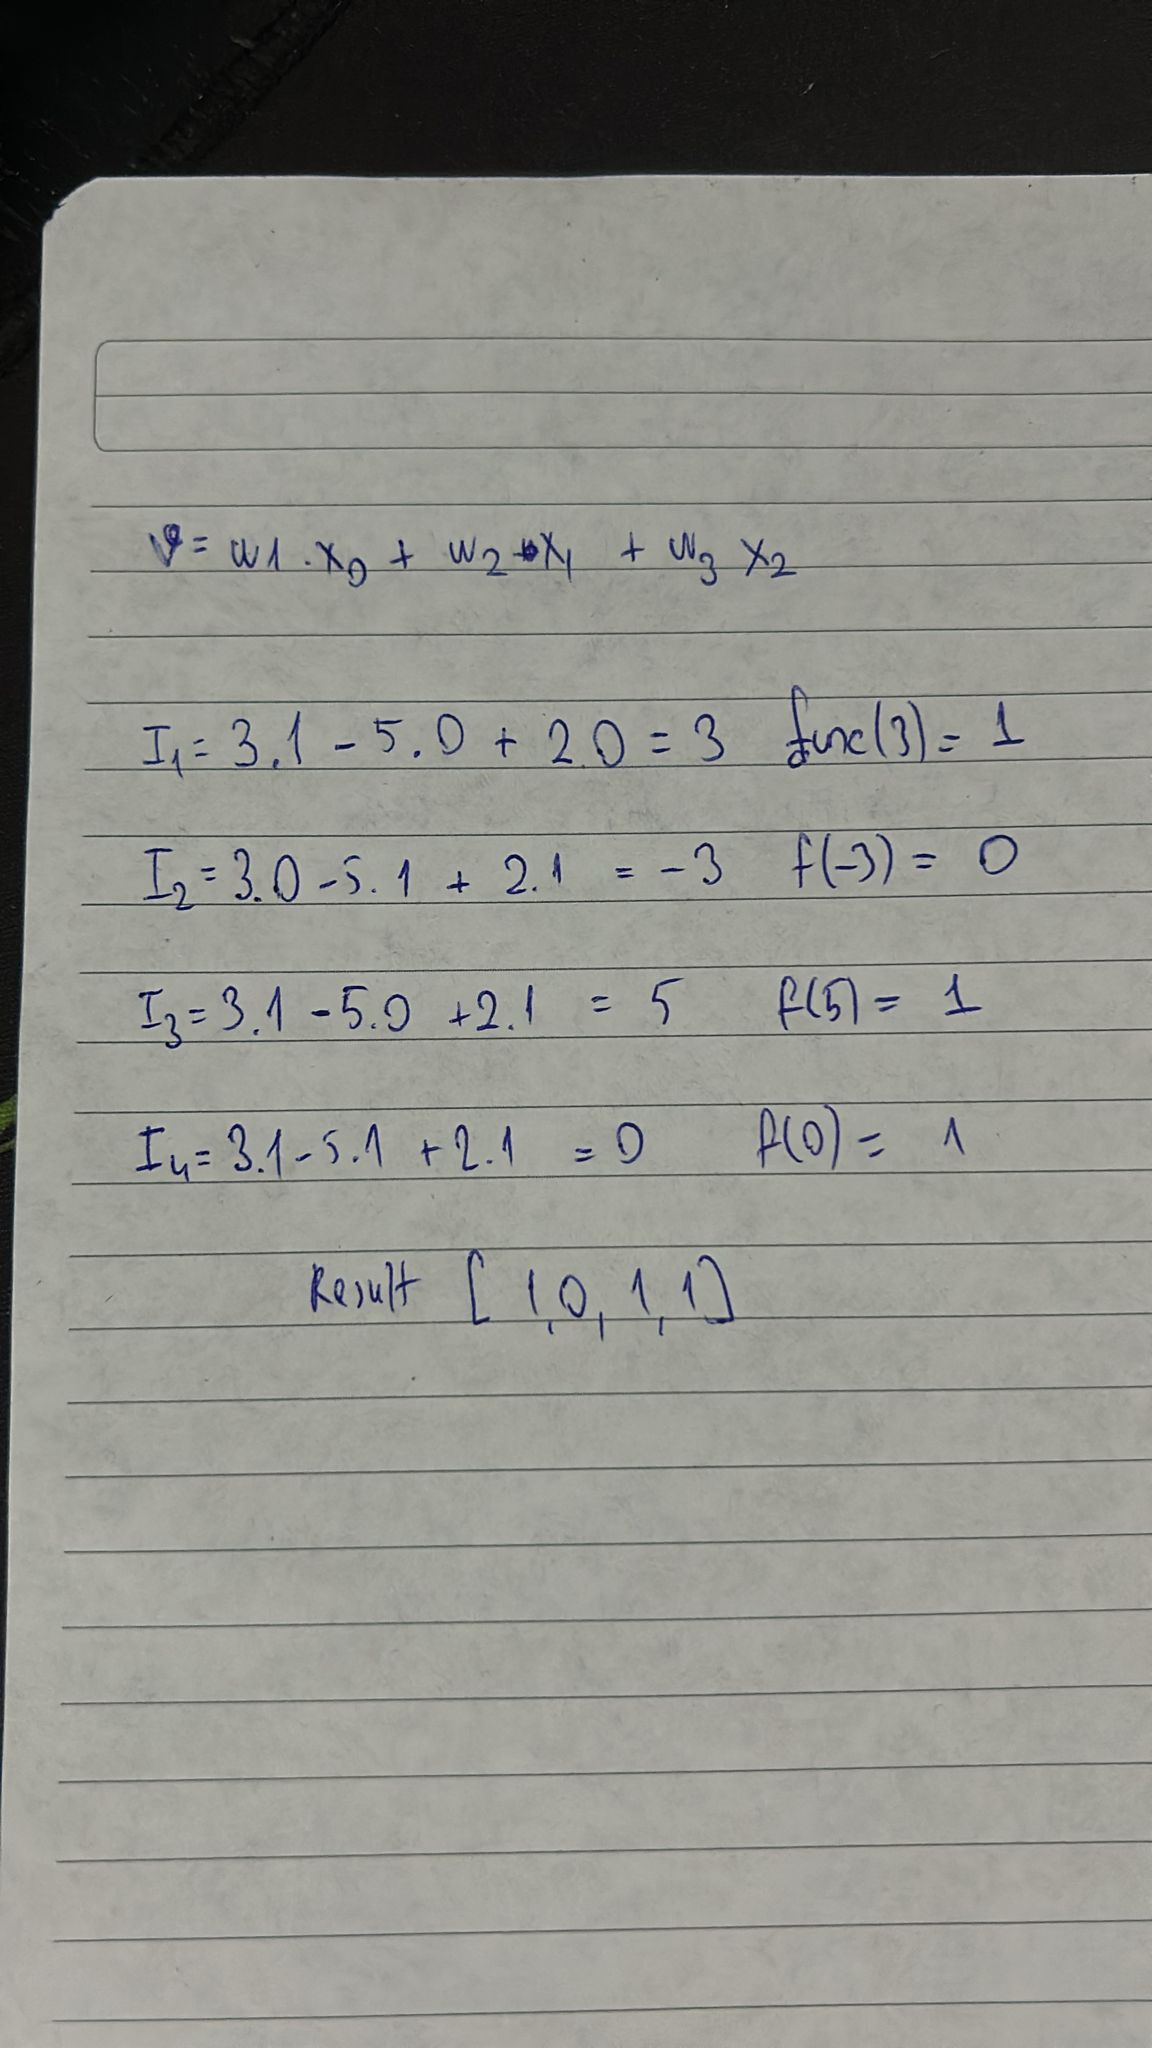 v = w1 . x0 + w2 . x1 + w3 x2
I1 = 3.1 - 5.0 + 2.0 = 3 func(3) = 1
I2 = 3.0 - 5.1 + 2.1 = -3 f(-3) = 0
I3 = 3.1 - 5.0 + 2.1 = 5 f(5) = 1
I4 = 3.1 - 5.1 + 2.1 = 0 f(0) = 1
Result [1,0,1,1]